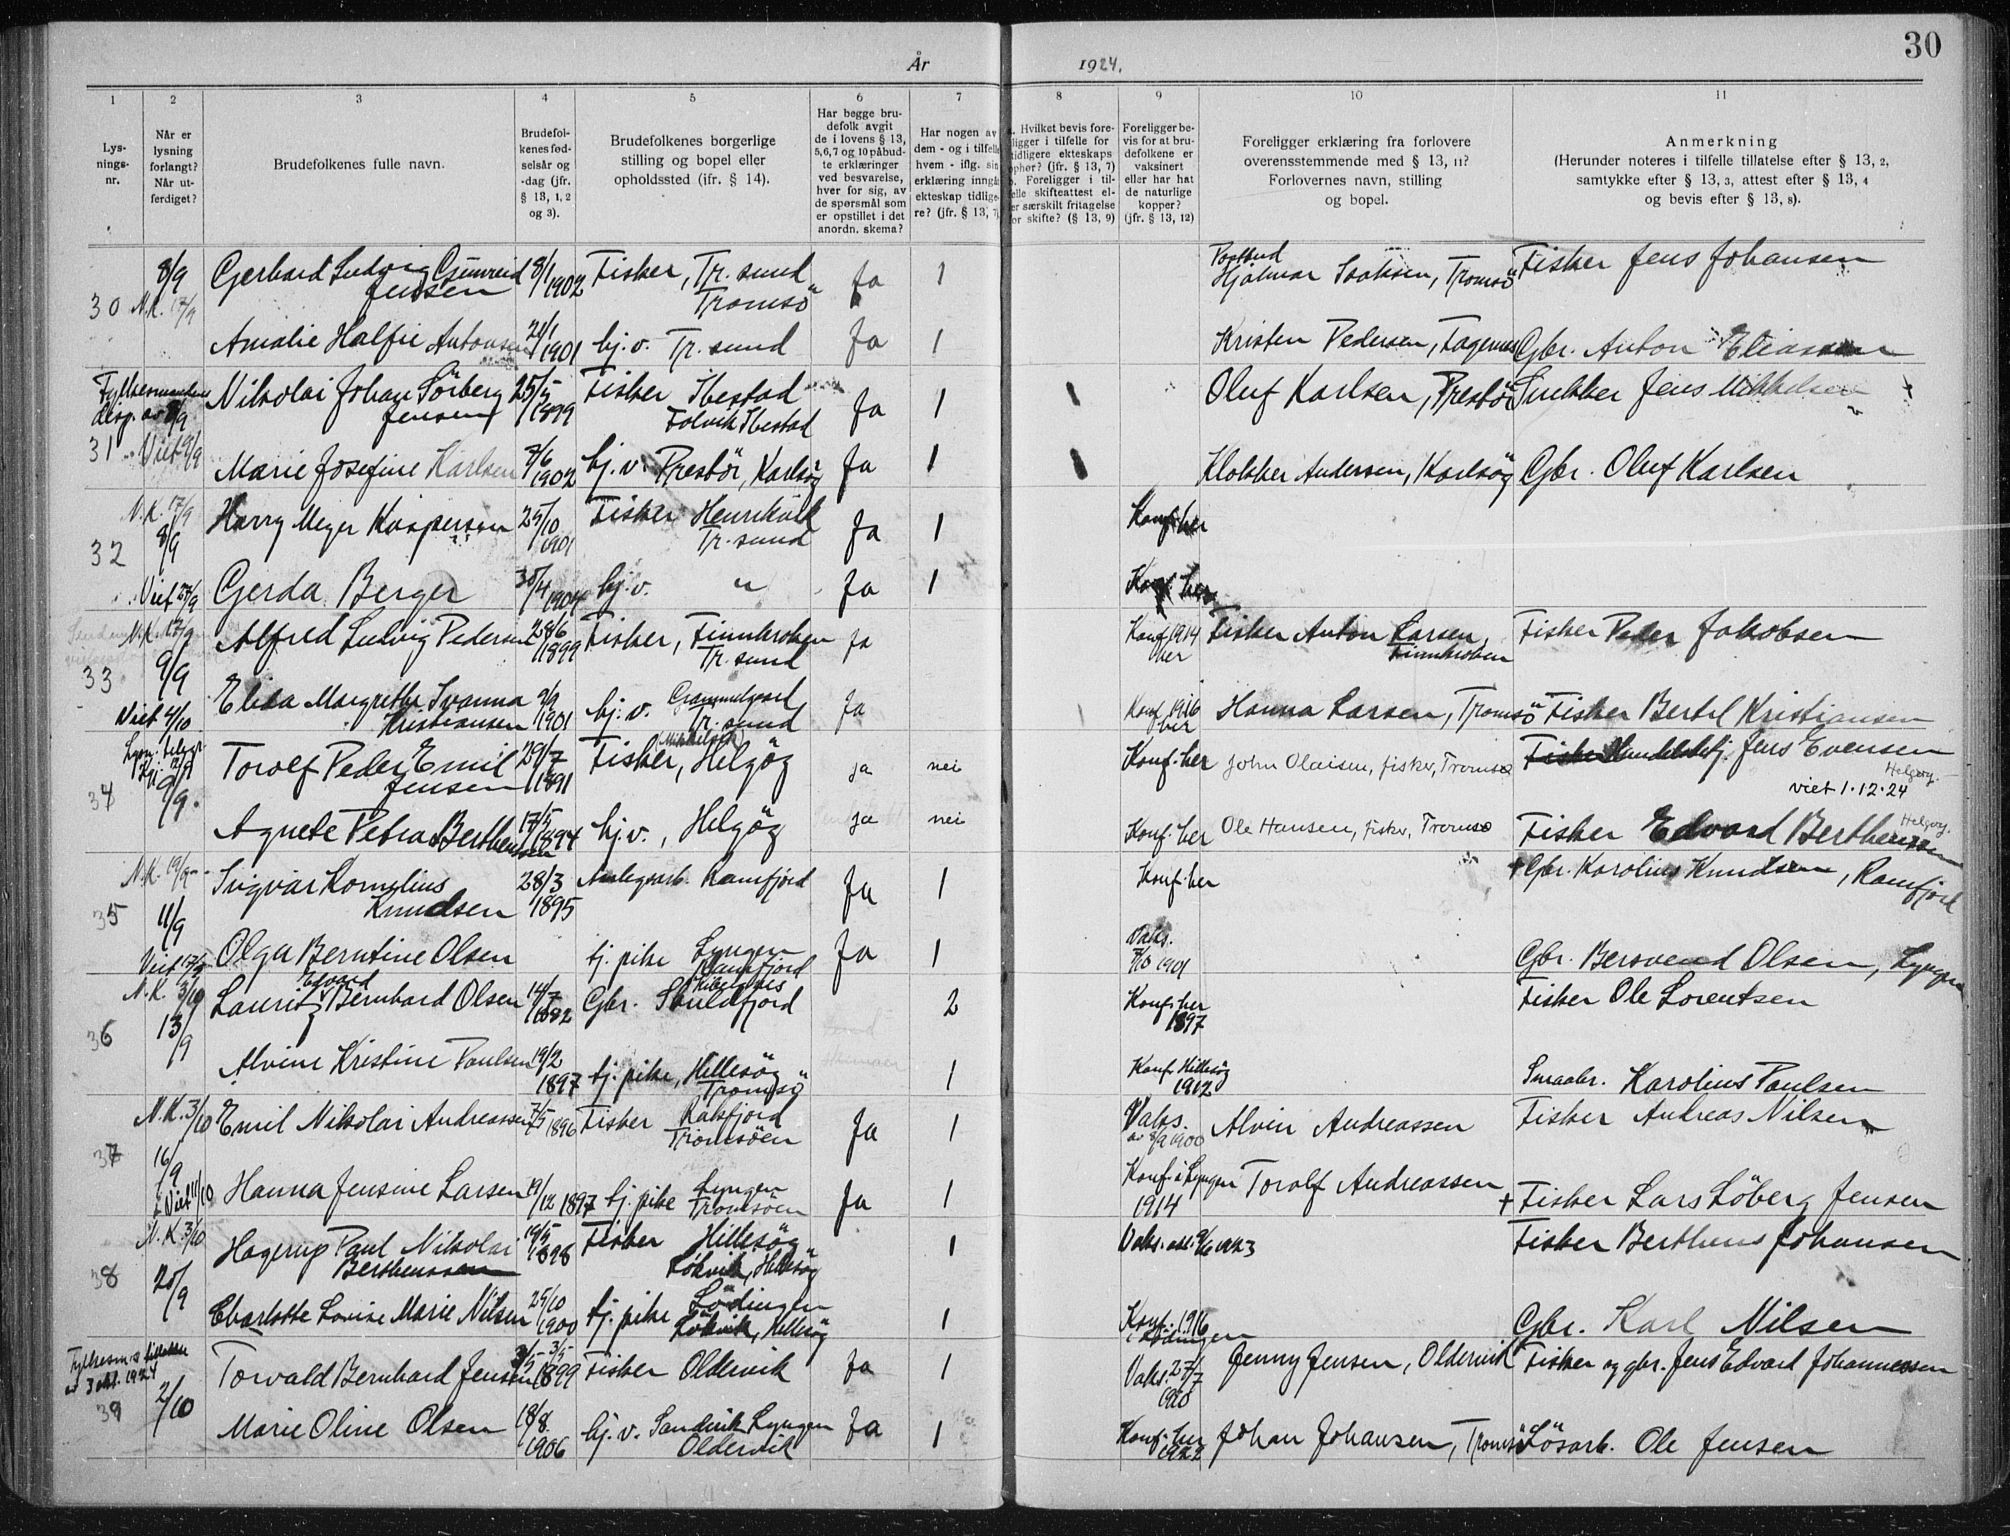 30
År 1924.
1 2 3 4 5 6 7 8 9 10 11
Lys-
nings-
nr.
Når er
lysning
forlangt?
Når ut-
ferdiget?
Brudefolkenes fulle navn.
Brudefol-
kenes fød-
selsår og
-dag (jfr.
§ 13, 1, 2
og 3).
Brudefolkenes borgerlige
stilling og bopel eller
opholdssted (ifr. § 14).
Har begge bru-
defolk avgit
de i lovens § 13,
5, 6, 7 og 10 påbud-
te erklæringer
ved besvarelse,
hver for sig, av
de spørsmål som
er opstillet i det
anordn. skema?
Har nogen av
dem - og i tilfelle
hvem - iflg. sin
erklæring inngått
ekteskap tidlige-
re? (jfr. § 13, 7)
a. Hvilket bevis fore-
ligger i tilfelle for
tidligere ekteskaps
ophør? (jfr. § 13, 7)
b. Foreligger i til-
felle skifteattest el-
er særskilt fritagelse
for skifte? (§ 13, 9)
Foreligger be-
vis for at bru-
defolkene er
vaksinert
eller har hat
de naturlige
kopper?
(jfr. § 13, 12)
Foreligger erklæring fra forlovere
overensstemmende med § 13, 11?
Forlovernes navn, stilling
og bopel.
Anmerkning
(Herunder noteres i tilfelle tillatelse efter § 13, 2,
samtykke efter § 13, 3, attest efter § 13, 4
og bevis efter § 13, 8).
30 8/9 N.K. 17/9 Gerhard Ludvig Jensen 8/1 1902 Fisker, Tr. sund Tromsö Ja 1 Hjalmar Isaksen, Tromsö Fisker Jens Johansen
Amalie Halfie Antonsen 21/1 1901 hj. v. Tr. sund Ja 1 Kristen Pedersen, Tagenes Gbr. Anton Eliassen
31 Fylkesmandens disp. av 8/9 Viet 9/9 Nikolai Johan Sörberg Jensen 25/5 1899 Fisker Ibestad Ibestad Ja 1 Oluf Karlsen, Prestbör Snekker Jens Mikkelsen
Marie Josefine Karlsen 7/6 1902 hj. v. Prestbör, Karlsöy Ja 1 Klokker Andersen, Karlsöy Gbr. Oluf Karlsen
32 N.K. 17/9 8/9 Harry Meyer Kaspersen 25/10 1901 Fisker Henrikvik Tr. sund Ja 1 Konf. her
Viet 27/9 Gerda Berger 30/4 1904 hj. v. " Ja 1 Konf. her
33 N.K. 17/9 9/9 Alfred Ludvig Pedersen 28/6 1899 Fisker, Finnkroken Tr. sund Ja Konf. 1914 her Fisker Anton Larsen, Finnkroken Fisker Peder Jakobsen
Viet 4/10 Elida Margrethe Ivanna Kristiansen 9/9 1901 hj. v. Grammelgaard Tr. sund Ja Konf. 1916 her Hanna Larsen, Tromsö Fisker Bertel Kristiansen
34 9/9. Torolf Peder Emil Jensen (Mikkelsen) 29/7 1891 Fisker, Helgöy ja nei Konf. her John Olaisen, fisker, Tromsø Handelsbetj. Jens Evensen Helgøy.
viet 1.12.24
Agnete Petra Berthensen 17/5 1894 hj. v., Helgöy ja nei Konf. her Ole Hansen, fisker, Tromsø Fisker Edvard Berthensen Helgøy.
35 N.K. 19/9 11/9 Sigvar Kornelius Knudsen 28/3 1895 Anlegsarb. Ramfjord Ja 1 Konf. her + Gbr. Karolius Knudsen, Ramfjord
Viet 17/9 Olga Berntine Olsen tj. pike Lyngen Ramfjord Ja 1 Vaks. 7/10 1901 Gbr. Bersvend Olsen, Lyngen
36 N.K. 3/10 13/9 Lauritz Edvard Bernhard Olsen 14/7 1882 Gbr. Skulsfjord 2 Konf. her 1897 Fisker Ole Lorentsen
Alvine Kristine Paulsen 19/2 1897 tj. pike, Hillesöy Tromsö 1 Konf. Hillesöy 1912 Smaabr. Karolius Paulsen
37 N.K. 3/10 16/9 Emil Nikolai Andreassen 7/5 1896 Fisker Kalsfjord Tromsöen Ja 1 Vaks. av 8/9 1900 Alvin Andreassen Fisker Andreas Nilsen
Viet 11/10 Hanna Jensine Larsen 19/12 1897 tj. pike Lyngen Tromsöen Ja 1 Konf. i Lyngen 1914 Torolf Andreassen + Fisker Lars Löberg Jensen
38 N.K. 3/10 20/9 Hagerup Paul Nikolai Berthenssen 19/5 1898 Fisker Hillesöy Lökvik, Hillesöy 1 Vaks. att. 9/6 1923 Fisker Berthens Johansen
Charlotte Lovise Marie Nilsen 25/10 1900 tj. pike Lödingen Lökvik, Hillesöy 1 Konf. 1916 i Lödingen Gbr. Karl Nilsen
39 Fylkesm.s tillatelse av 3 okt. 1924 2/10 Torvald Bernhard Jensen 3/5 1899 Fisker Oldervik Ja 1 Vaks. 27/7 1920 Jenny Jensen, Oldervik Fisker og gbr. Jens Edvard Johannessen
Marie Oline Olsen 18/8 1906 hj. v. Sandvik Lyngen Oldervik Ja 1 Konf. her 1922 Johan Johansen, Tromsö Lösarb. Ole Jensen